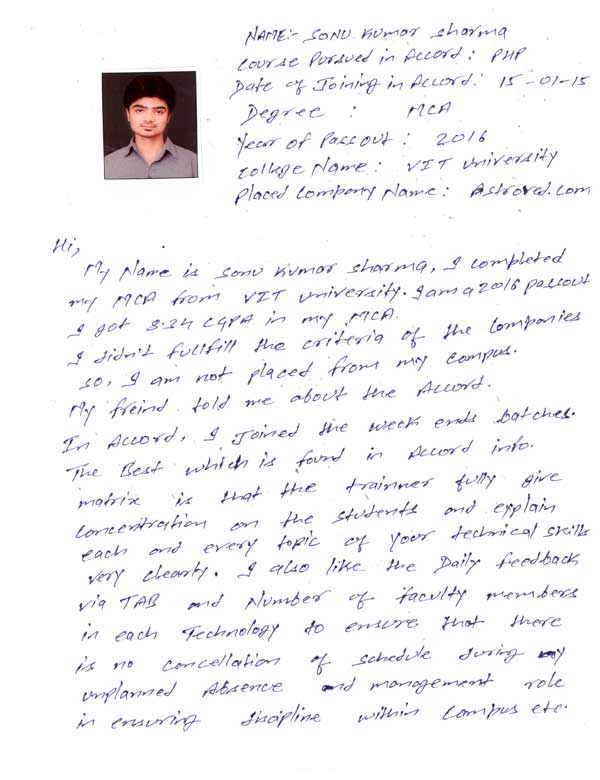 NAME:- SONU Kumar Sharma
Course Pursued in Accord : PHP
Date of Joining in Accord : 15-01-15
Degree : MCA
Year of Passout : 2016
College Name : VIT University
Placed Company Name : Astroved.com
Hi,
My Name is Sonu Kumar Sharma, I completed
my MCA from VIT University. I am a 2016 passout
I got 8.34 CGPA in my MCA.
I didn't fullfill the criteria of the companies
so, I am not placed from my campus.
My freind told me about the Accord.
In Accord, I Joined the week ends batches.
The Best which is found in Accord info.
matrix is that the trainner fully give
concentration on the students and explain
each and every topic of your technical skills
very clearly. I also like the Daily feedback
via TAB and Number of faculty members
in each Technology to ensure that there
is no cancellation of schedule during any
unplanned Absence and management role
in ensuring discipline within campus etc.